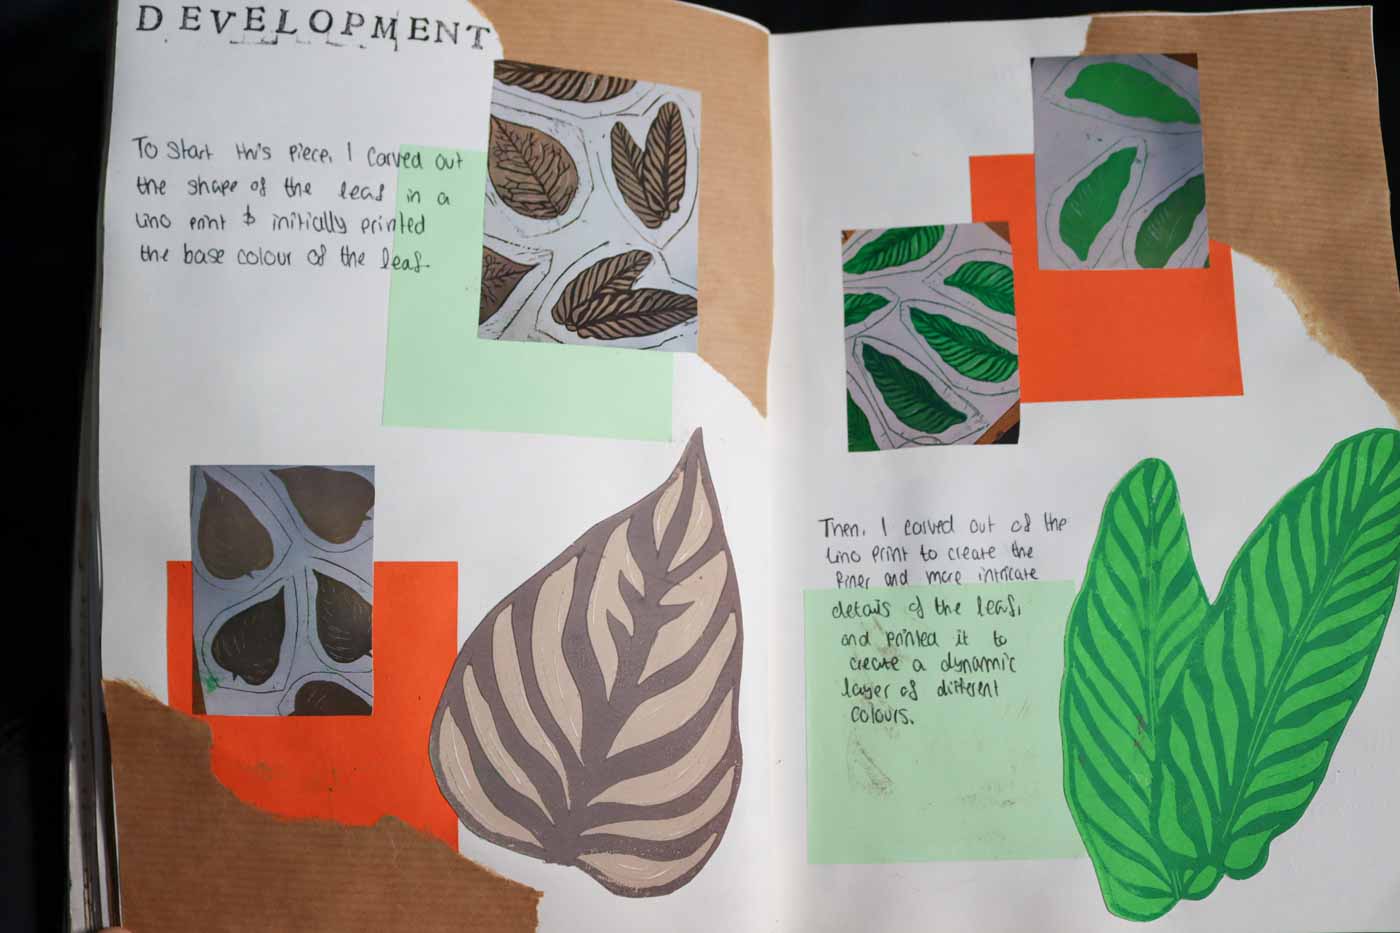 DEVELOPMENT
To start this piece, I carved out
the shape of the leaf in a
lino print & initially printed
the base colour of the leaf.
Then, I carved out of the
lino print to create the
finer and more intricate
details of the leaf,
and printed it to
create a dynamic
layer of different
colours.